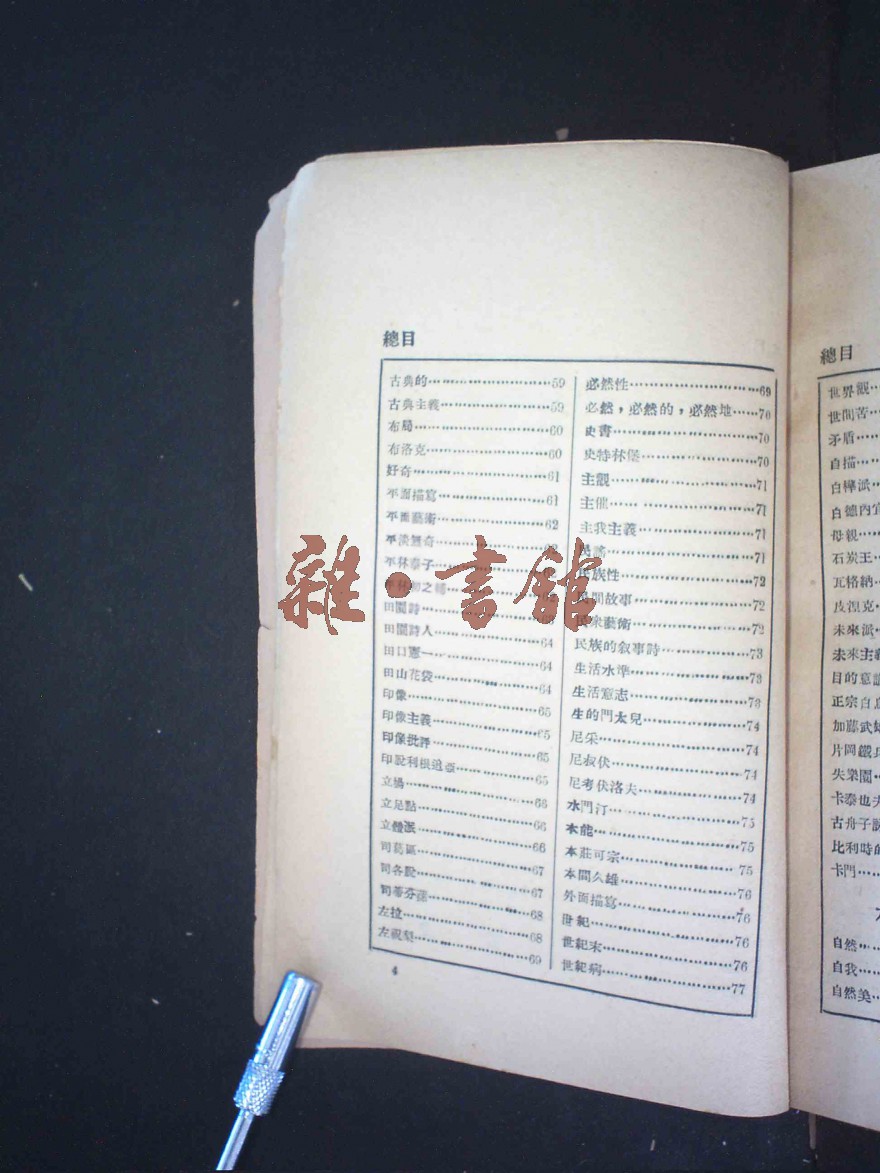 總目
古典的………59
古典主義………59
布局………60
布洛克………60
好奇………61
平面描寫………61
平面藝術………62
平淡無奇………62
平林泰子………
平林初之輔………
田園詩………
田園詩人………64
田口憲一………64
田山花袋………64
印像………65
印像主義………65
印像批評………65
印設利根追亞………65
立場………66
立足點………66
立體派………66
司葛區………67
司各脫………67
司蒂芬蓀………68
左拉………68
左祝梨………69
必然性………69
必然，必然的，必然地……70
史書………70
史特林堡………70
主觀………71
主催………71
主我主義………71
民謠………71
民族性………72
民間故事………72
民眾藝術………72
民族的叙事詩………73
生活水準………73
生活意志………73
生的門太兒………74
尼采………74
尼叔伏………74
尼考伏洛夫………74
水門汀………75
本能………75
本莊可宗………75
本間久雄………76
外面描寫………76
世紀………76
世紀末………76
世紀病………77
4
總目
世界觀
世間苦
矛盾
自描
白樺派
白德內宜
母親
石炭王
瓦格納
皮涅克
未來派
未來主義
目的意識
正宗白鳥
加藤武雄
片岡鐵兵
失樂園
卡泰也夫
古舟子詠
比利時的
卡門
自然
自我
自然美
雜·書館